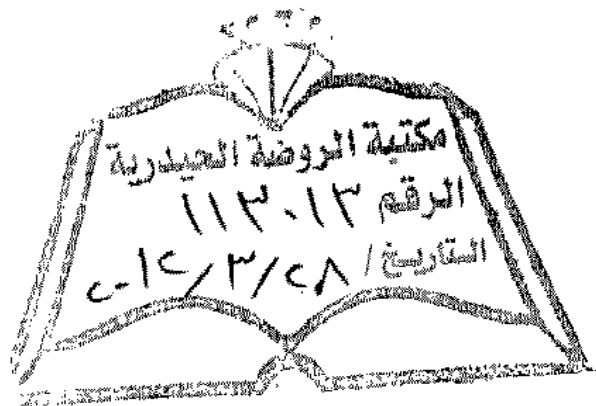 مكتبة الروضة الحيدرية
الرقم ١١٣٠١٣
التاريخ / ٢٨/٣/٢٠١٢